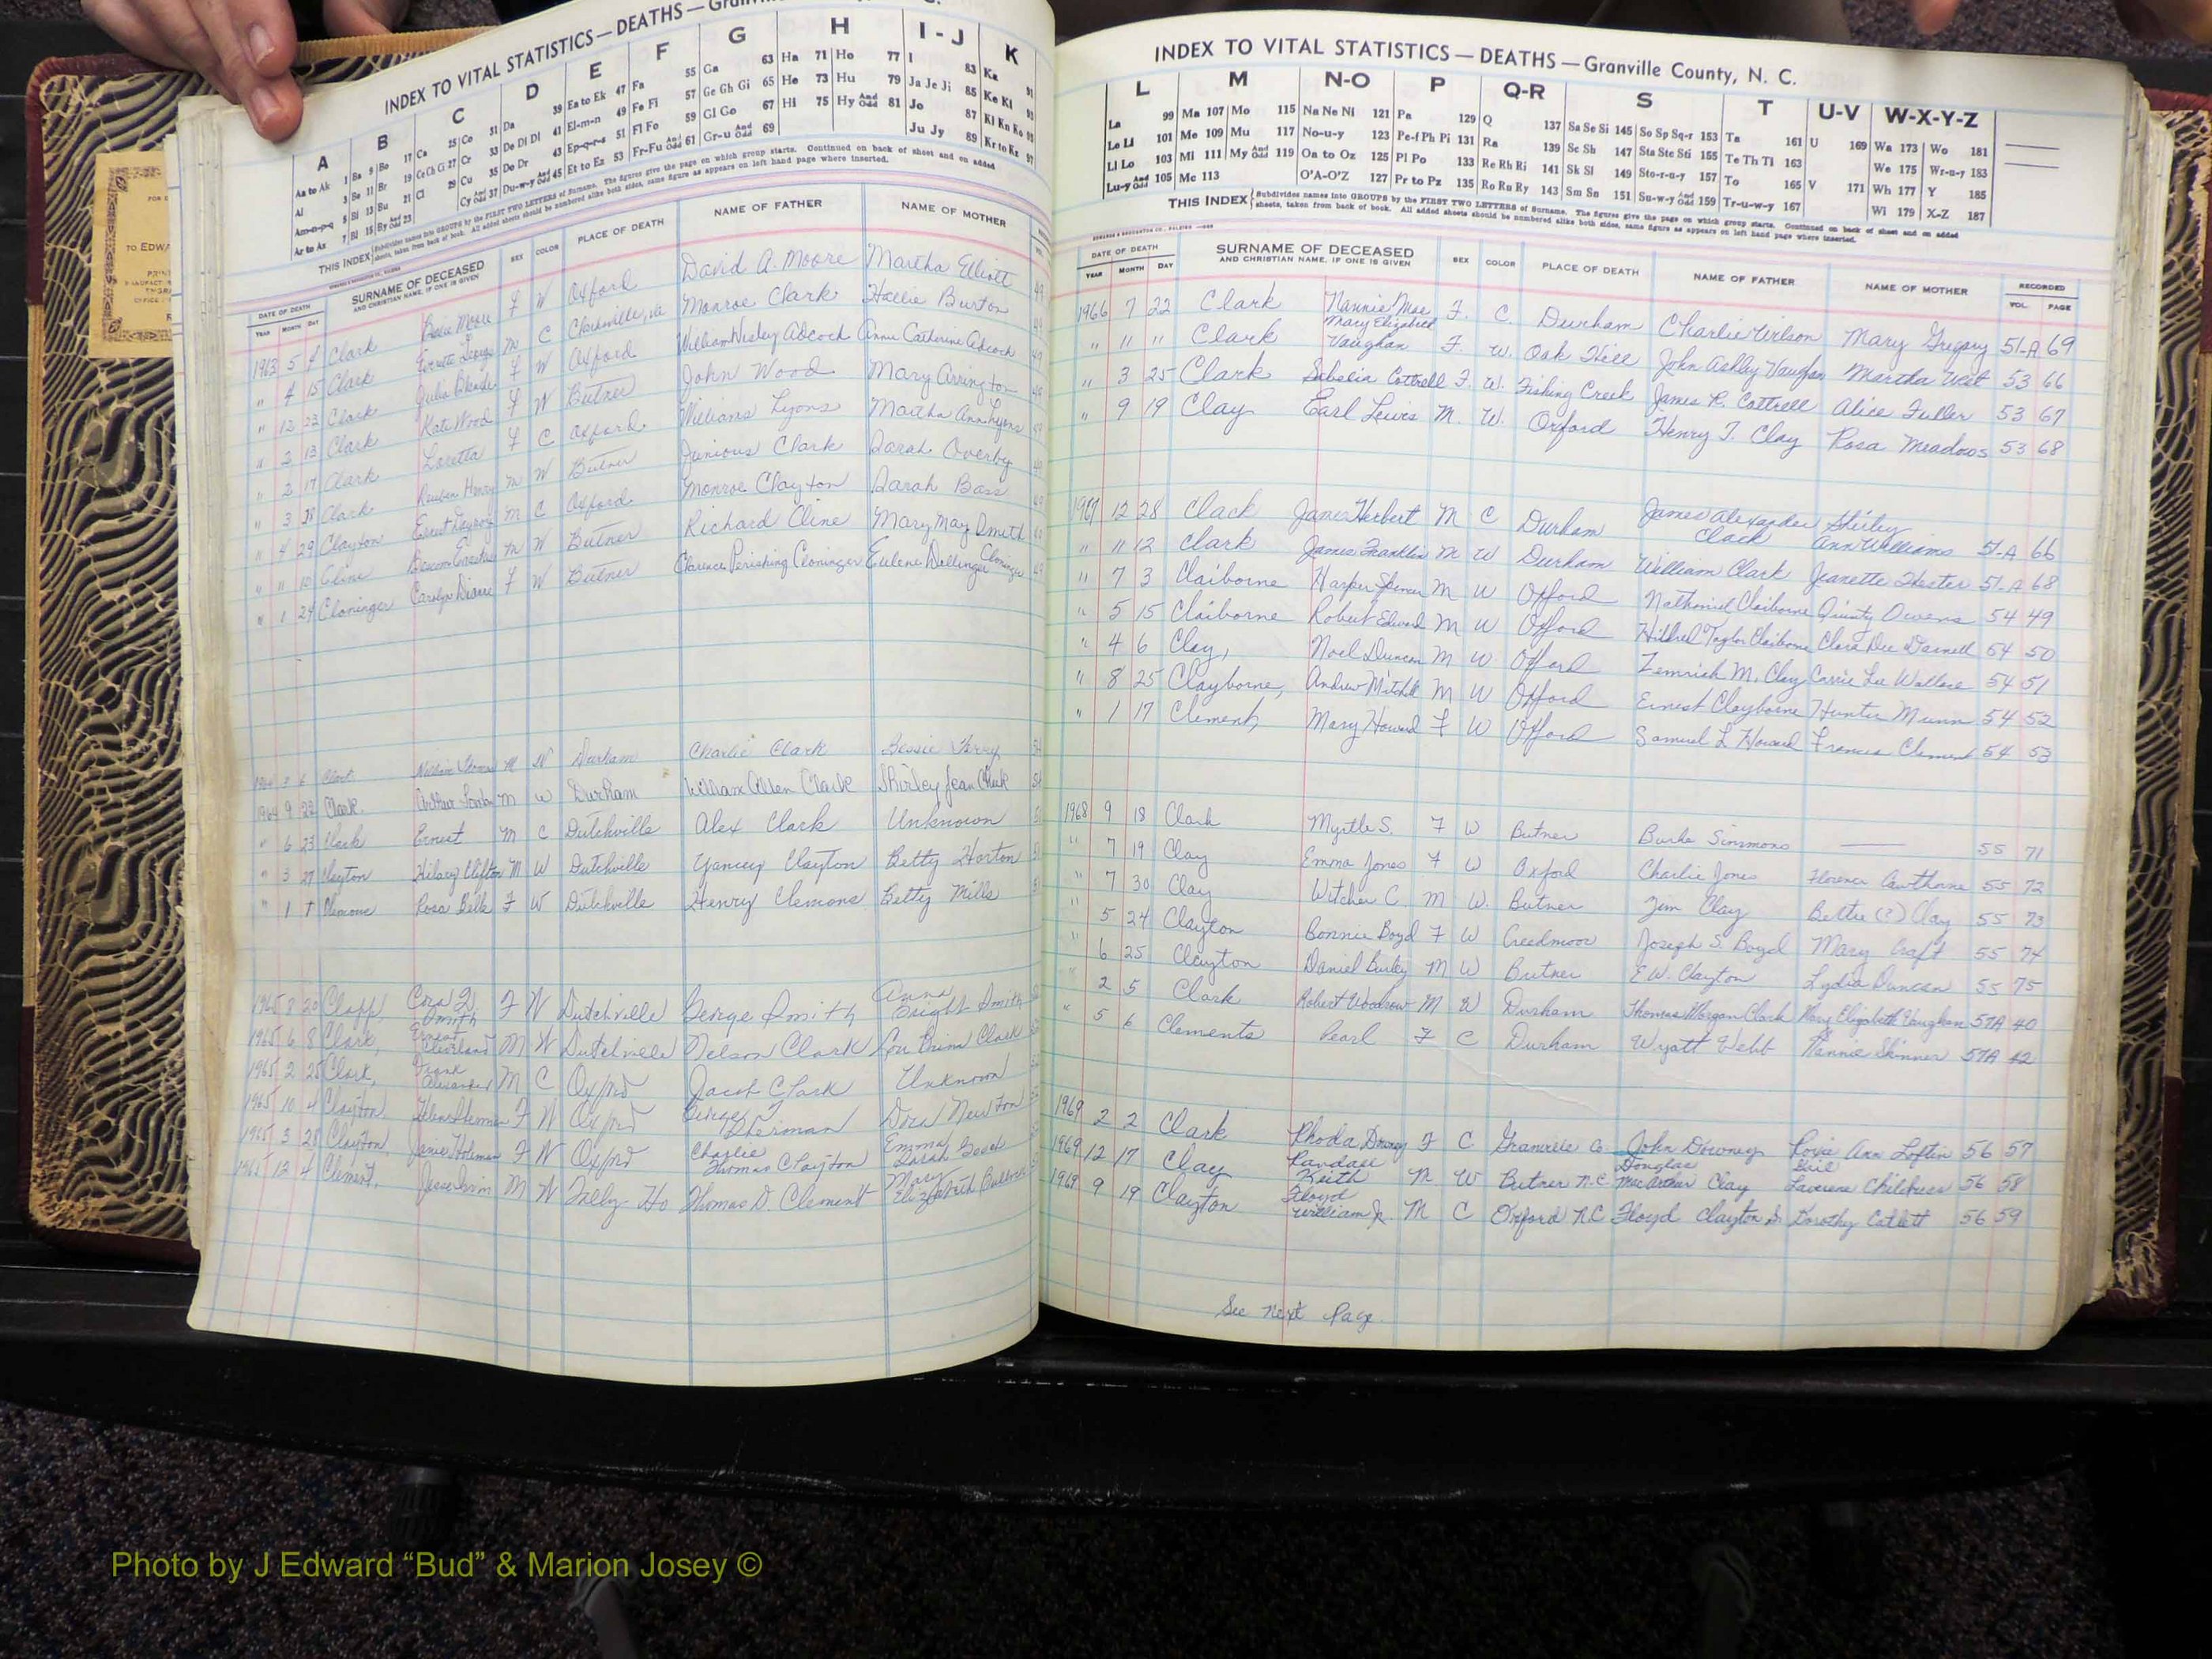 INDEX TO VITAL STATISTICS — DEATHS —
A B C D E F G H I-J K
Aa to Ak 1 Ba 9 Bo 17 Ca 25 Co 31 Da 39 Ea to Ek 47 Fa 55 Ga 63 Ha 71 Ho 77 I 83 Ka 91
Al 3 Be 11 Br 19 Ce Ch Ci 27 Cr 33 De Di Dl 41 El-m-n 49 Fe Fi 57 Ge Gh Gi 65 He 73 Hu 79 Ja Je Ji 85 Ke Ki
Am-n-p-q 5 Bi 13 Bu 21 Cl 29 Cu 35 Do Dr 43 Ep-q-r-s 51 Fl Fo 59 Gl Go 67 Hi 75 Hy And Odd 81 Jo 87 Kl Kn Ko 95
Ar to Az 7 Bl 15 By And Odd 23 Cy And Odd 37 Du-w-y And Odd 45 Et to Ez 53 Fr-Fu And Odd 61 Gr-u And Odd 69 Ju Jy 89 Kr to Kz 97
THIS INDEX Subdivides names into GROUPS by the FIRST TWO LETTERS of Surname. The figures give the page on which group starts. Continued on back of sheet and on added
sheets, taken from back of book. All added sheets should be numbered alike both sides, same figure as appears on left hand page where inserted.
DATE OF DEATH SURNAME OF DECEASED SEX COLOR PLACE OF DEATH NAME OF FATHER NAME OF MOTHER
YEAR MONTH DAY AND CHRISTIAN NAME, IF ONE IS GIVEN
1963 5 Clark Moore F W Oxford David A. Moore Martha Elliott
" 4 15 Clark Everette George M C Clarksville, Va Monroe Clark Hallie Burton
" 12 23 Clark Julia F W Oxford William Wesley Adcock Annie Catherine Adcock
" 2 13 Clark Kate Wood F W Butner John Wood Mary Arrington
" 2 17 Clark Loretta F C Oxford Williams Lyons Martha Ann Lyons
" 3 Clark Reuben Henry M W Butner Junious Clark Sarah Overby
" 4 29 Clayton M C Oxford Monroe Clayton Sarah Bass
" 11 10 Cline M W Butner Richard Cline Mary May Smith
" 1 24 Cloninger Carolyn Diane F W Butner Clarence Perishing Cloninger Eulene Dellinger Cloninger
1964 3 6 Clark William Thomas M W Durham Charlie Clark Bessie Perry
1964 9 22 Clark Arthur M W Durham William Allen Clark Shirley Jean Cheek
" 6 23 Clark Ernest M C Dutchville Alex Clark Unknown
" 3 27 Clayton Hilary Clifton M W Dutchville Yancey Clayton Betty Horton
" 1 Clemons Rosa Belle F W Dutchville Henry Clemons Betty Mills
1965 8 20 Clapp, Cora Smith F W Dutchville George Smith Anna Bright Smith
1965 6 8 Clark, Ernest Cleveland M W Dutchville Nelson Clark Clark
1965 2 25 Clark, Frank Alexander M C Oxford Jacob Clark Unknown
1965 10 4 Clayton, Sherman F W Oxford George T. Sherman Newton
1965 3 28 Clayton, Janie Holeman F W Oxford Charlie Thomas Clayton Emma Sarah
1965 12 4 Clement, M W Tally Ho Thomas D. Clement Mary Elizabeth
INDEX TO VITAL STATISTICS — DEATHS — Granville County, N. C.
L M N-O P Q-R S T U-V W-X-Y-Z
La 99 Ma 107 Mo 115 Na Ne Ni 121 Pa 129 Q 137 Sa Se Si 145 So Sp Sq-r 153 Ta 161 U 169 Wa 173 Wo 181
Le Li 101 Me 109 Mu 117 No-u-y 123 Pe-f Ph Pi 131 Ra 139 Sc Sh 147 Sta Ste Sti 155 Te Th Ti 163 We 175 Wr-u-y 183
Ll Lo 103 Mi 111 My And Odd 119 Oa to Oz 125 Pl Po 133 Re Rh Ri 141 Sk Sl 149 Sto-r-u-y 157 To 165 V 171 Wh 177 Y 185
Lu-y And Odd 105 Mc 113 O'A-O'Z 127 Pr to Pz 135 Ro Ru Ry 143 Sm Sn 151 Su-w-y And Odd 159 Tr-u-w-y 167 Wi 179 X-Z 187
THIS INDEX Subdivides names into GROUPS by the FIRST TWO LETTERS of Surname. The figures give the page on which group starts. Continued on back of sheet and on added
sheets, taken from back of book. All added sheets should be numbered alike both sides, same figure as appears on left hand page where inserted.
DATE OF DEATH SURNAME OF DECEASED SEX COLOR PLACE OF DEATH NAME OF FATHER NAME OF MOTHER RECORDED
YEAR MONTH DAY AND CHRISTIAN NAME, IF ONE IS GIVEN VOL. PAGE
1966 7 22 Clark Nannie Mae F. C. Durham Charlie Wilson Mary Gregory 51-A 69
" 11 " Clark Mary Elizabeth Vaughan F. W. Oak Hill John Ashley Vaughan Martha West 53 66
" 3 25 Clark Cottrell F. W. Fishing Creek James R. Cottrell Alice Fuller 53 67
" 9 19 Clay Earl Lewis M. W. Oxford Henry T. Clay Rosa Meadows 53 68
1967 12 28 Clack James Herbert M C Durham James Alexander Clack Shirley Ann Williams 51-A 66
" 11 12 Clark James Franklin M W Durham William Clark Jeanette Hester 51-A 68
" 7 3 Claiborne Harper Spencer M W Oxford Nathaniel Claiborne Quinty Owens 54 49
" 5 15 Claiborne Robert Edward M W Oxford Hildred Taylor Claiborne Clara Dee Darnell 54 50
" 4 6 Clay, Noel Duncan M W Oxford Zemriah M. Clay Carrie Lee Wallace 54 51
" 8 25 Clayborne, Andrew Mitchell M W Oxford Ernest Clayborne Hunter Munn 54 52
" 1 17 Clement, Mary Howard F W Oxford Samuel L Howard Frances Clement 54 53
1968 9 18 Clark Myrtle S. F W Butner Burke Simmons —— 55 71
" 7 19 Clay Emma Jones F W Oxford Charlie Jones Florence Cawthorne 55 72
" 7 30 Clay Witcher C. M W. Butner Jim Clay Bettie (?) Clay 55 73
" 5 24 Clayton Bonnie Boyd F W Creedmoor Joseph S. Boyd Mary Craft 55 74
" 6 25 Clayton Daniel Burley M W Butner E.W. Clayton Lydia Duncan 55 75
" 2 5 Clark Robert Woodrow M W Durham Thomas Morgan Clark Mary Elizabeth Vaughan 57A 40
" 5 6 Clements Pearl F C Durham Wyatt Webb Nannie Skinner 57A 42
1969 2 2 Clark Rhoda Downey F C Granville Co John Downey Ann Loftin 56 57
1969 12 17 Clay Randall Keith M W Butner N.C Douglas MacArthur Clay Gail Laverene Childress 56 58
1969 9 19 Clayton Floyd William Jr. M C Oxford N.C Floyd Clayton Sr Dorothy Catlett 56 59
See next Page
Photo by J Edward “Bud” & Marion Josey ©